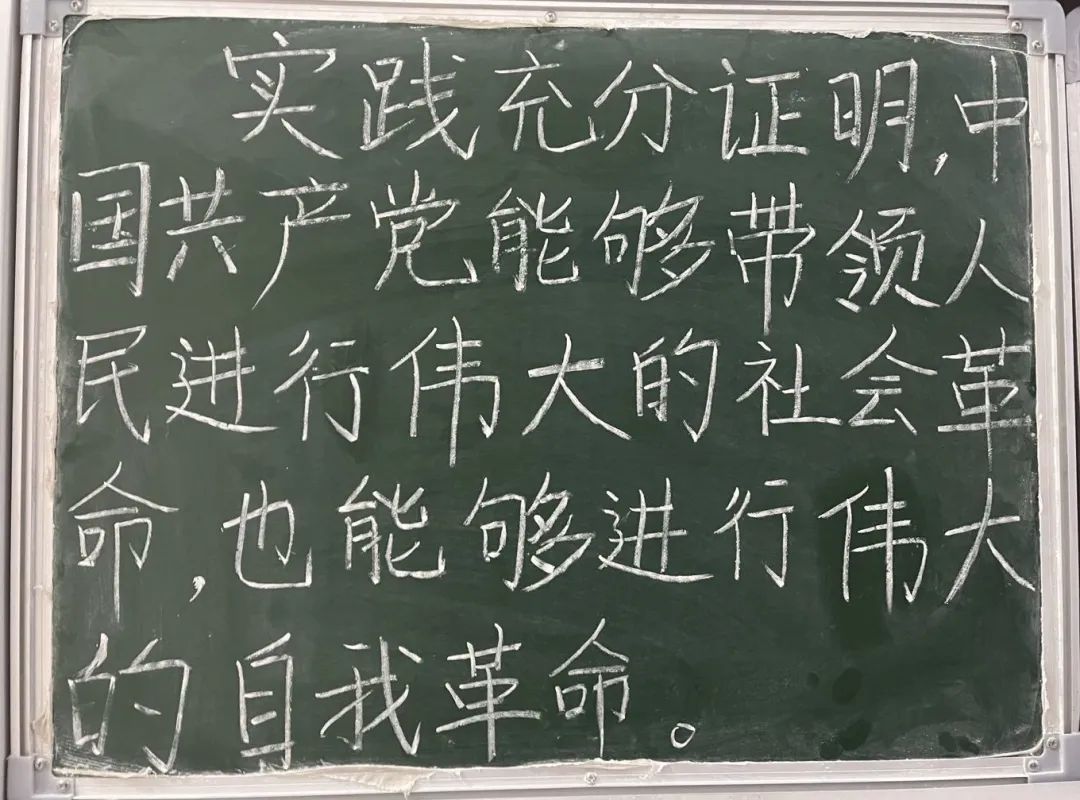 实践充分证明,中
国共产党能够带领人
民进行伟大的社会革
命,也能够进行伟大
的自我革命。